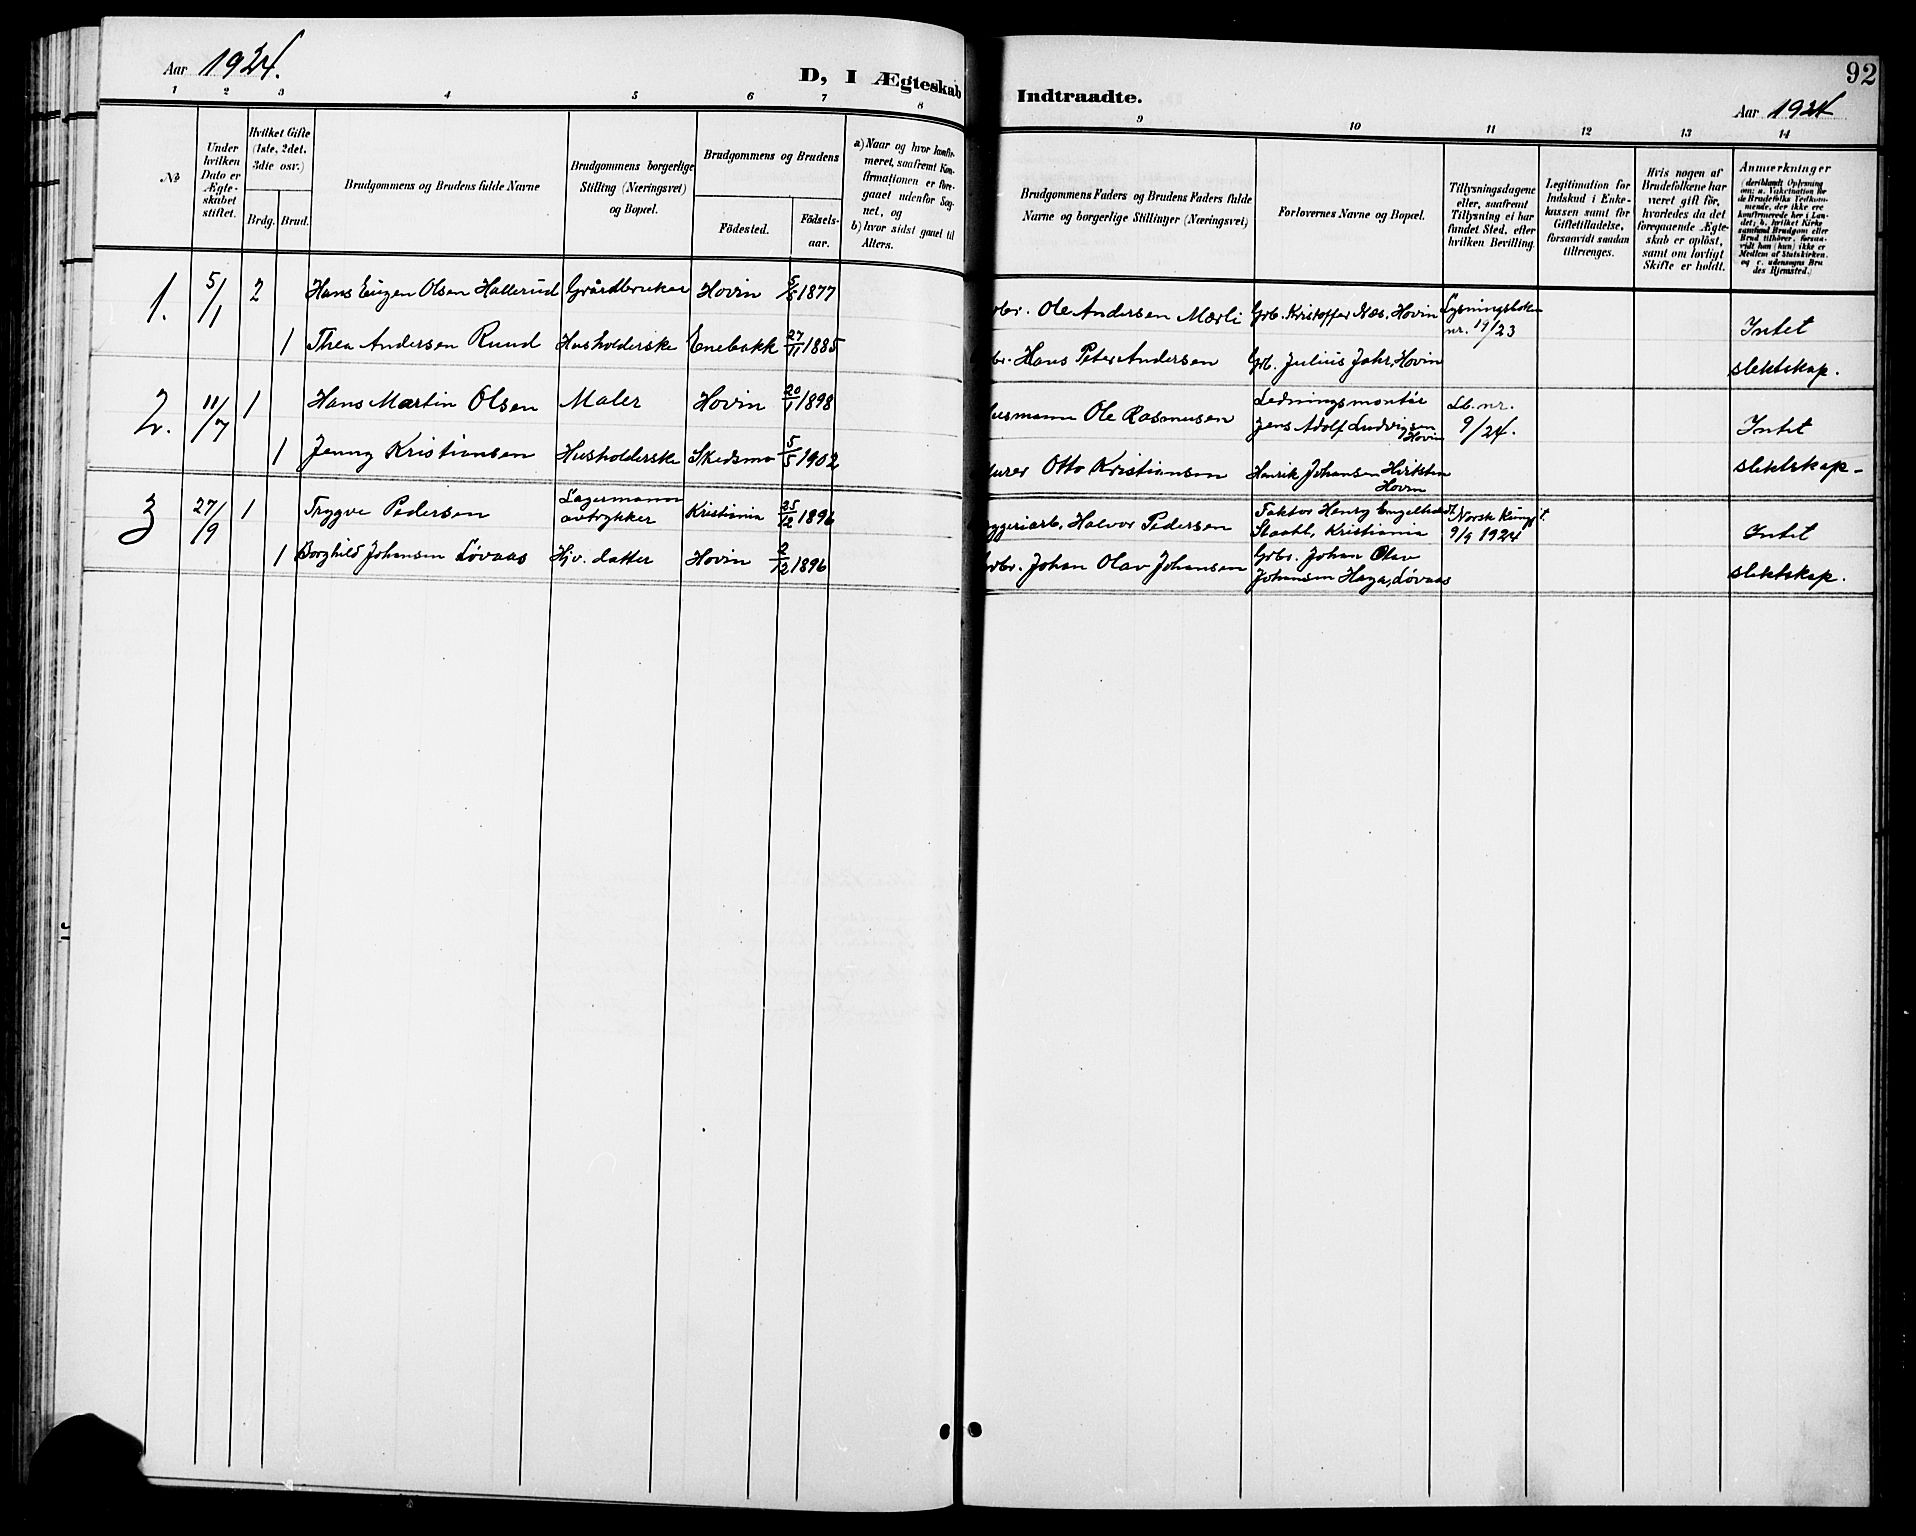 Aar 1924.
D, I Ægteskab
1 2 3 4 5 6 7 8
No
Under hvilken Dato er Ægteskabet stiftet.
Hvilket Gifte (1ste, 2det, 3die osv.)
Brdg. Brud.
Brudgommens og Brudens fulde Navne
Brudgommens borgerlige Stilling (Næringsvei) og Bopæl.
Brudgommens og Brudens
Födested. Födselsaar.
a) Naar og hvor konfirmeret, saafremt Konfirmationen er foregaaet udenfor Sognet, og
b) hvor sidst gaaet til Alters.
1. 5/1 2 Hans Eugen Olsen Hallerud Gårdbruker Hovin 5/8 1877
1 Thea Andersen Ruud Husholderske Enebakk 27/11 1885
2. 11/7 1 Hans Martin Olsen Maler Hovin 20/1 1898
1 Jenny Kristiansen Husholderske Skedsmo 5/5 1902
3 27/9 1 Trygve Pedersen Lagermann avtrykker Kristiania 25/12 1896
1 Borghild Johansen Løvaas Hjv. datter Hovin 2/12 1896
92
Indtraadte.
Aar 1924
9 10 11 12 13 14
Brudgommens Faders og Brudens Faders fulde Navne og borgerlige Stillinger (Næringsvei)
Forlovernes Navne og Bopæl.
Tillysningsdagene eller, saafremt Tillysning ei har fundet Sted, efter hvilken Bevilling.
Legitimation for Indskud i Enkekassen samt for Giftetilladelse, forsaavidt saadan tiltrænges.
Hvis nogen af Brudefolkene har været gift för, hvorledes da det foregaaende Ægteskab er oplöst, samt om lovligt Skifte er holdt.
Anmærkninger
(deriblandt Oplysning om: a. Vakcination for de Brudefolks Vedkommende, der ikke ere konfirmerede her i Landet; b. hvilket Kirkesamfund Brudgom eller Brud tilhörer, forsaavidt han (hun) ikke er Medlem af Statskirken, og c. udensogns Brudes Hjemsted.)
br. Ole Andersen Mærli Grb. Kristoffer Næs, Hovin Lysningsboken nr. 19/23 Intet
br. Hans Peter Andersen Grb. Julius Jahr, Hovin slektskap.
usmann Ole Rasmussen Ledningsmontør Jens Adolf Ludvigsen Hovin Lb. nr. 9/24. Intet
urer Otto Kristiansen Henrik Johansen Hovin slektskap.
ggeriarb. Halvor Pedersen Faktor Henry Staahl, Kristiania Norsk 9/9 1924 Intet
br. Johan Olav Johansen Grbr. Johan Olav Johansen Haga, Løvaas slektskap.